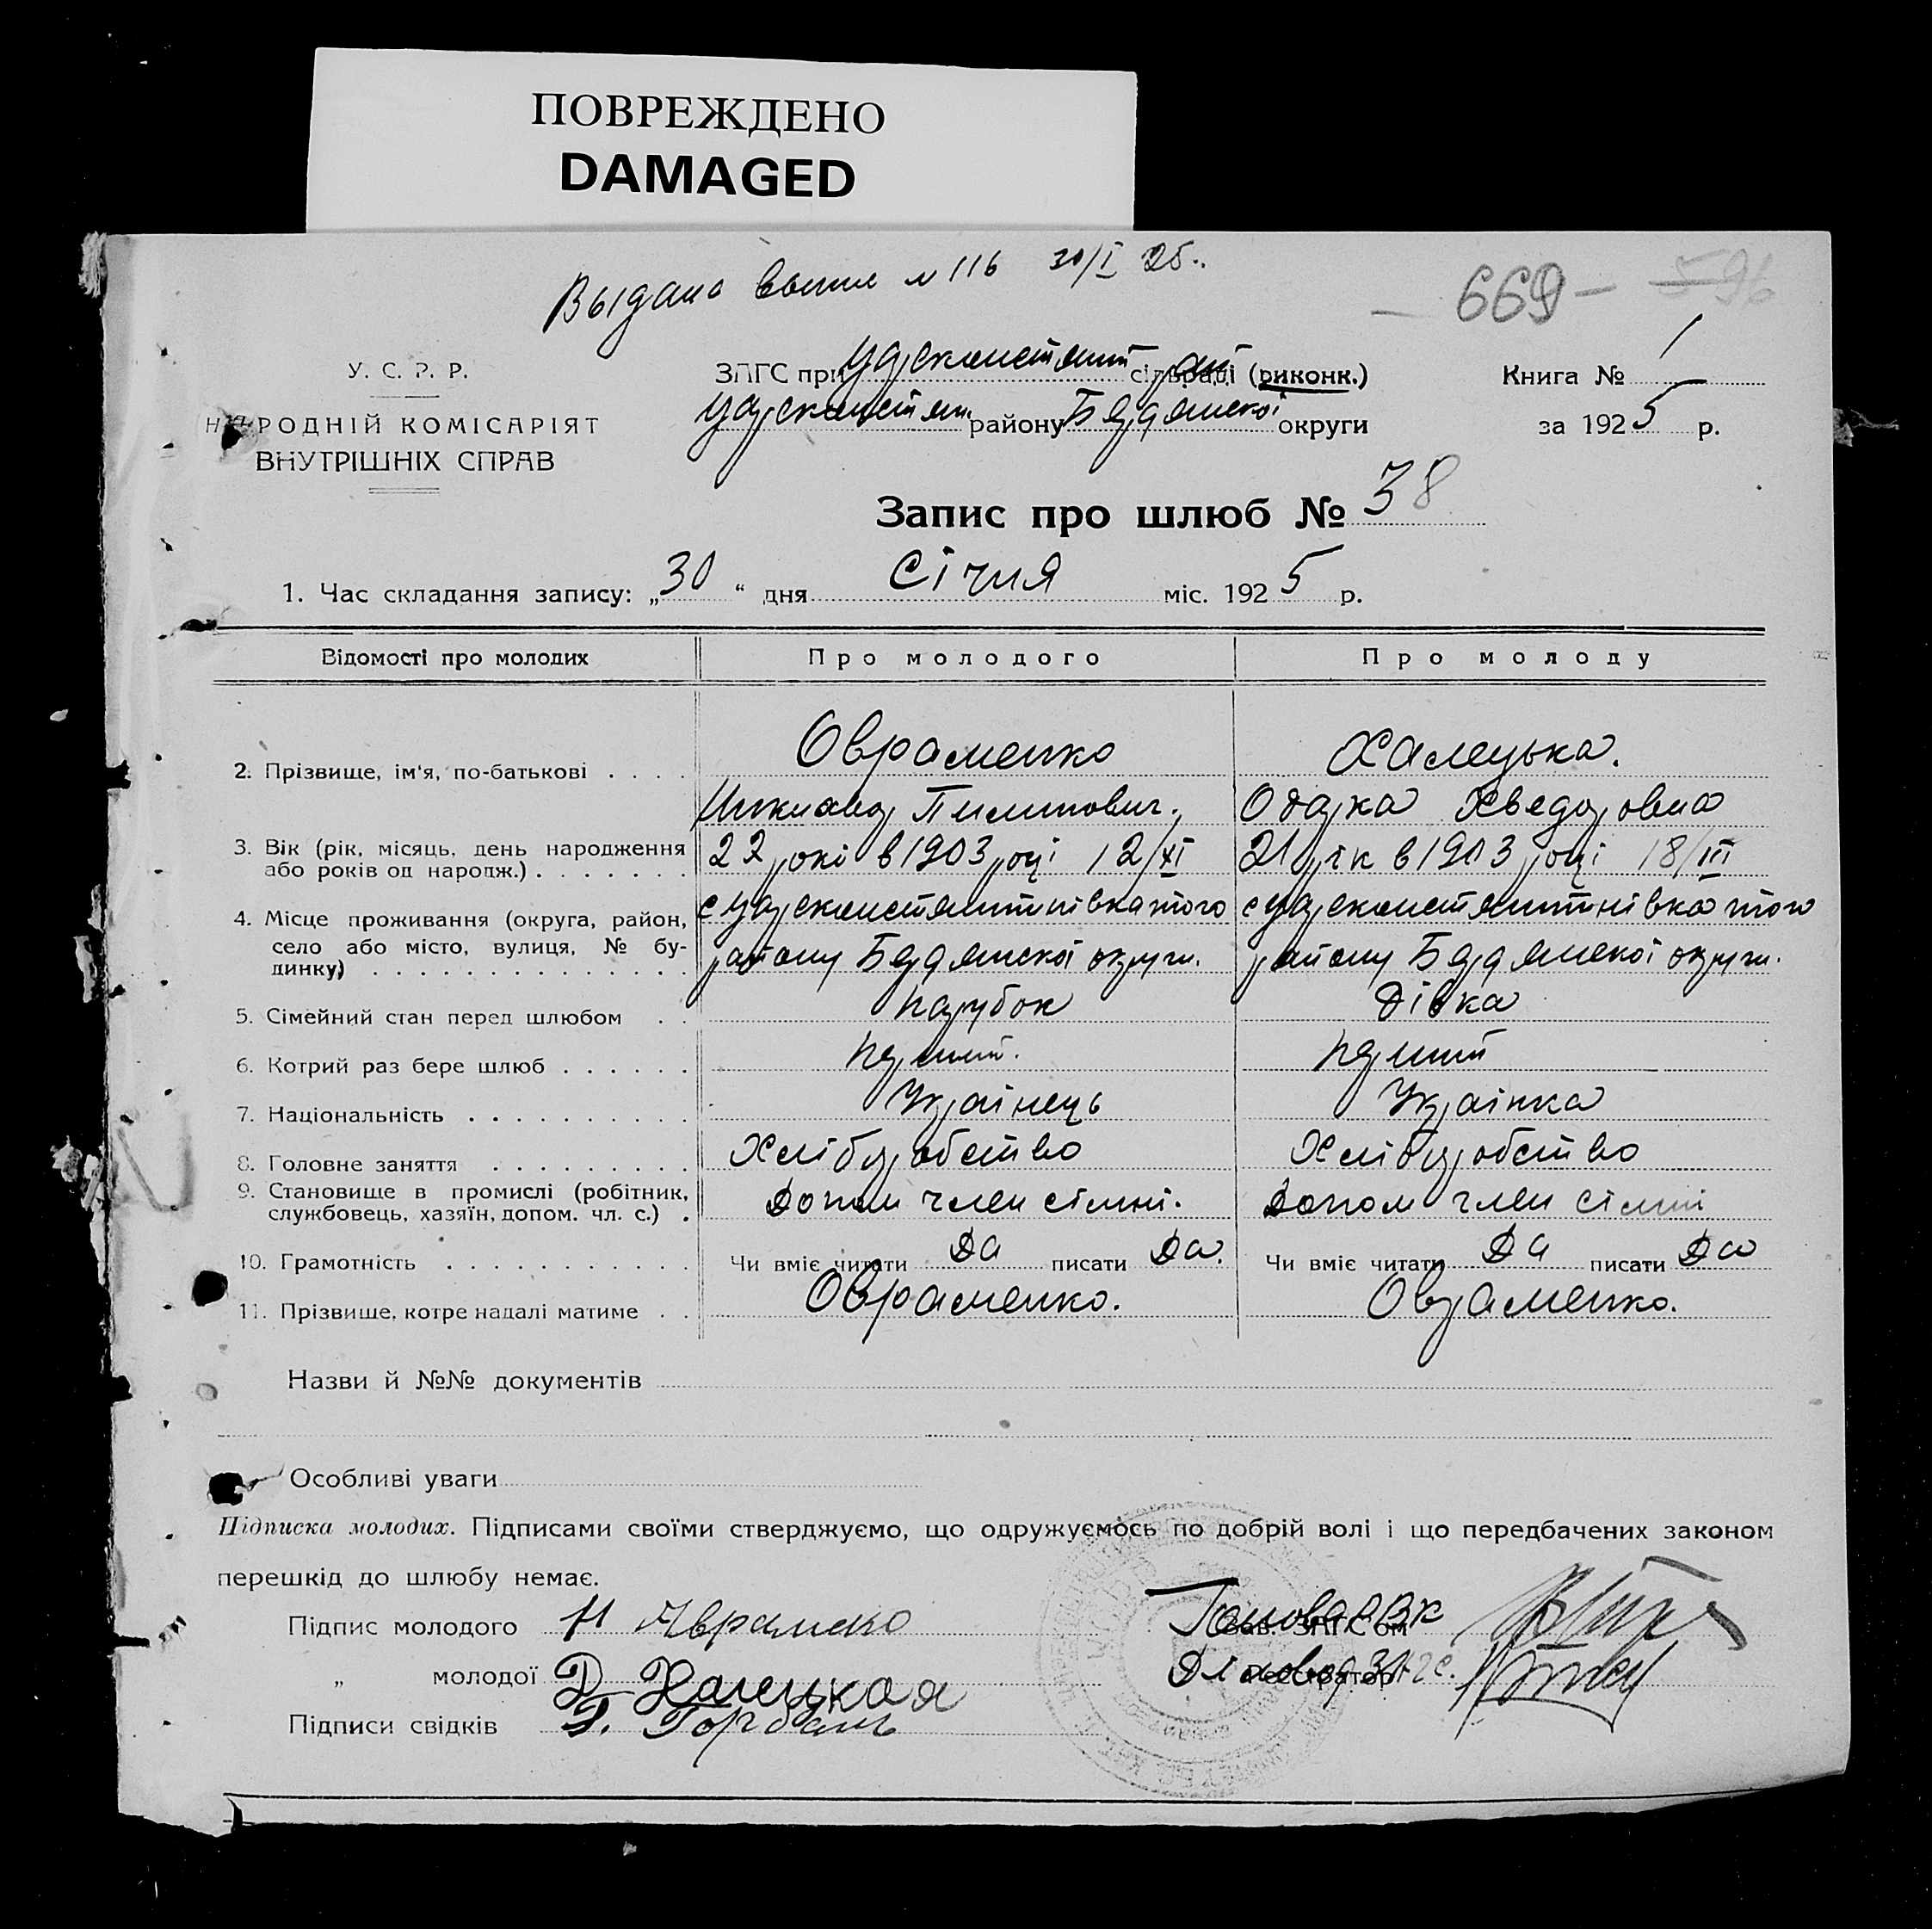 ПОВРЕЖДЕНО
DAMAGED
Выдана выпис № 116 30/I 25..
669 — 596
У. С. Р. Р.
НАРОДНІЙ КОМІСАРІЯТ
ВНУТРІШНІХ СПРАВ
ЗАГС при Царсконстянт рай сільраді (риконк.)
Царсконстян. району Бердянскої округи
Книга № 1
за 1925 р.
Запис про шлюб № 38
1. Час складання запису: „30“ дня Січня міс. 1925 р.
Відомості про молодих Про молодого Про молоду
2. Прізвище, ім'я, по-батькові . . . . Овраменко Халецька.
Пилипович. Одарка Хведоровна
3. Вік (рік, місяць, день народження або років од народж.) . . . . . . . 22 рокі в 1903 році 12/XI 21 рік в 1903 році 18/III
4. Місце проживання (округа, район, село або місто, вулиця, № будинку) . . . . . . . . . . . . . . с Царсконстянтинівка того с Царсконстянтинівка того
району Бердянскої округи. району Бердянскої округи.
5. Сімейний стан перед шлюбом . . Парубок Дівка
6. Котрий раз бере шлюб . . . . . . Перший. Перший
7. Національність . . . . . . . . . . Українець Українка
8. Головне заняття . . . . . . . . . Хліборобство Хліборобство
9. Становище в промислі (робітник, службовець, хазяїн, допом. чл. с.) . Допом член сімні. Допом член сімні
10. Грамотність . . . . . . . . . . . Чи вміє читати Да писати Да. Чи вміє читати Да писати Да
11. Прізвище, котре надалі матиме . . Овраменко. Овраменко.
Назви й №№ документів
Особливі уваги
Підписка молодих. Підписами своїми стверджуємо, що одружуємось по добрій волі і що передбачених законом
перешкід до шлюбу немає.
Підпис молодого Н Авраменко Зав. ЗАГС'ом
„ молодої Д Халецкая
Підписи свідків Г. Горбань